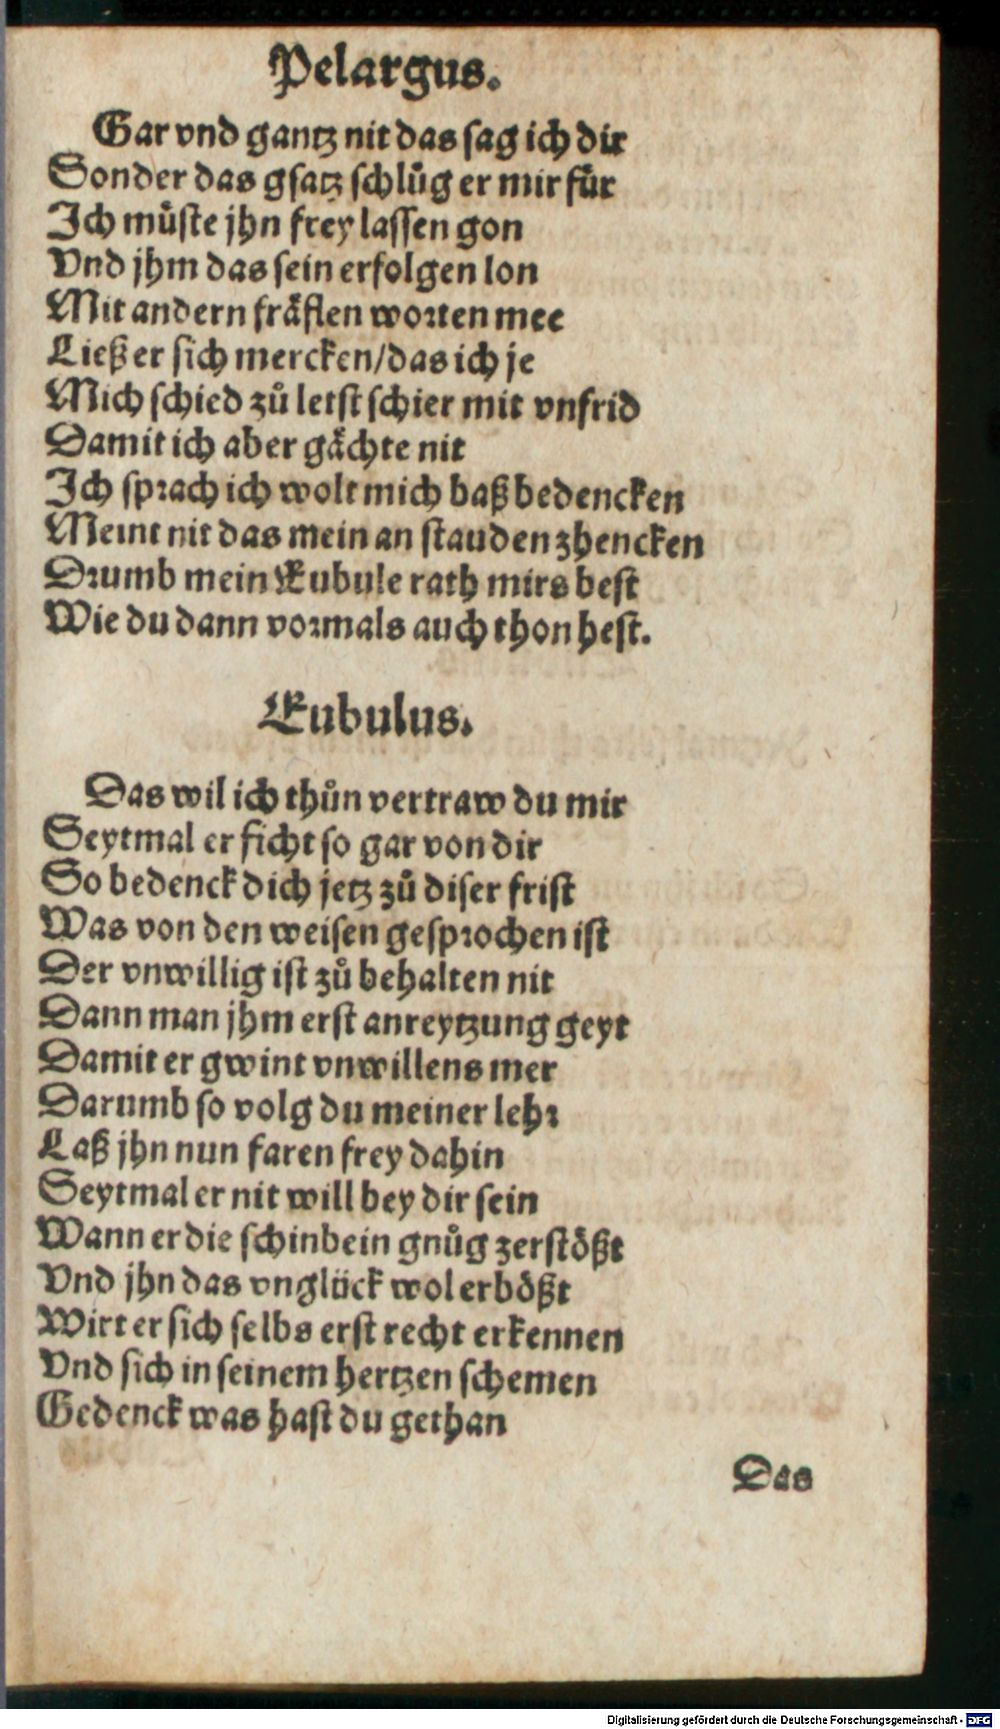 Pelargus.
Gar vnd gantz nit das sag ich dir
Sonder das gsatz schlůg er mir für
Ich můste jhn frey lassen gon
Vnd jhm das sein erfolgen lon
Mit andern fräflen worten mee
Ließ er sich mercken/das ich je
Mich schied zů letst schier mit vnfrid
Damit ich aber gächte nit
Ich sprach ich wolt mich baß bedencken
Meint nit das mein an stauden zhencken
Drumb mein Eubule rath mirs best
Wie du dann vormals auch thon hest.
Eubulus.
Das wil ich thůn vertraw du mir
Seytmal er ficht so gar von dir
So bedenck dich jetz zů diser frist
Was von den weisen gesprochen ist
Der vnwillig ist zů behalten nit
Dann man jhm erst anreytzung geyt
Damit er gwint vnwillens mer
Darumb so volg du meiner lehr
Laß jhn nun faren frey dahin
Seytmal er nit will bey dir sein
Wann er die schinbein gnůg zerstößt
Vnd jhn das vnglück wol erbößt
Wirt er sich selbs erst recht erkennen
Vnd sich in seinem hertzen schemen
Gedenck was hast du gethan
Das
Digitalisierung gefördert durch die Deutsche Forschungsgemeinschaft - DFG